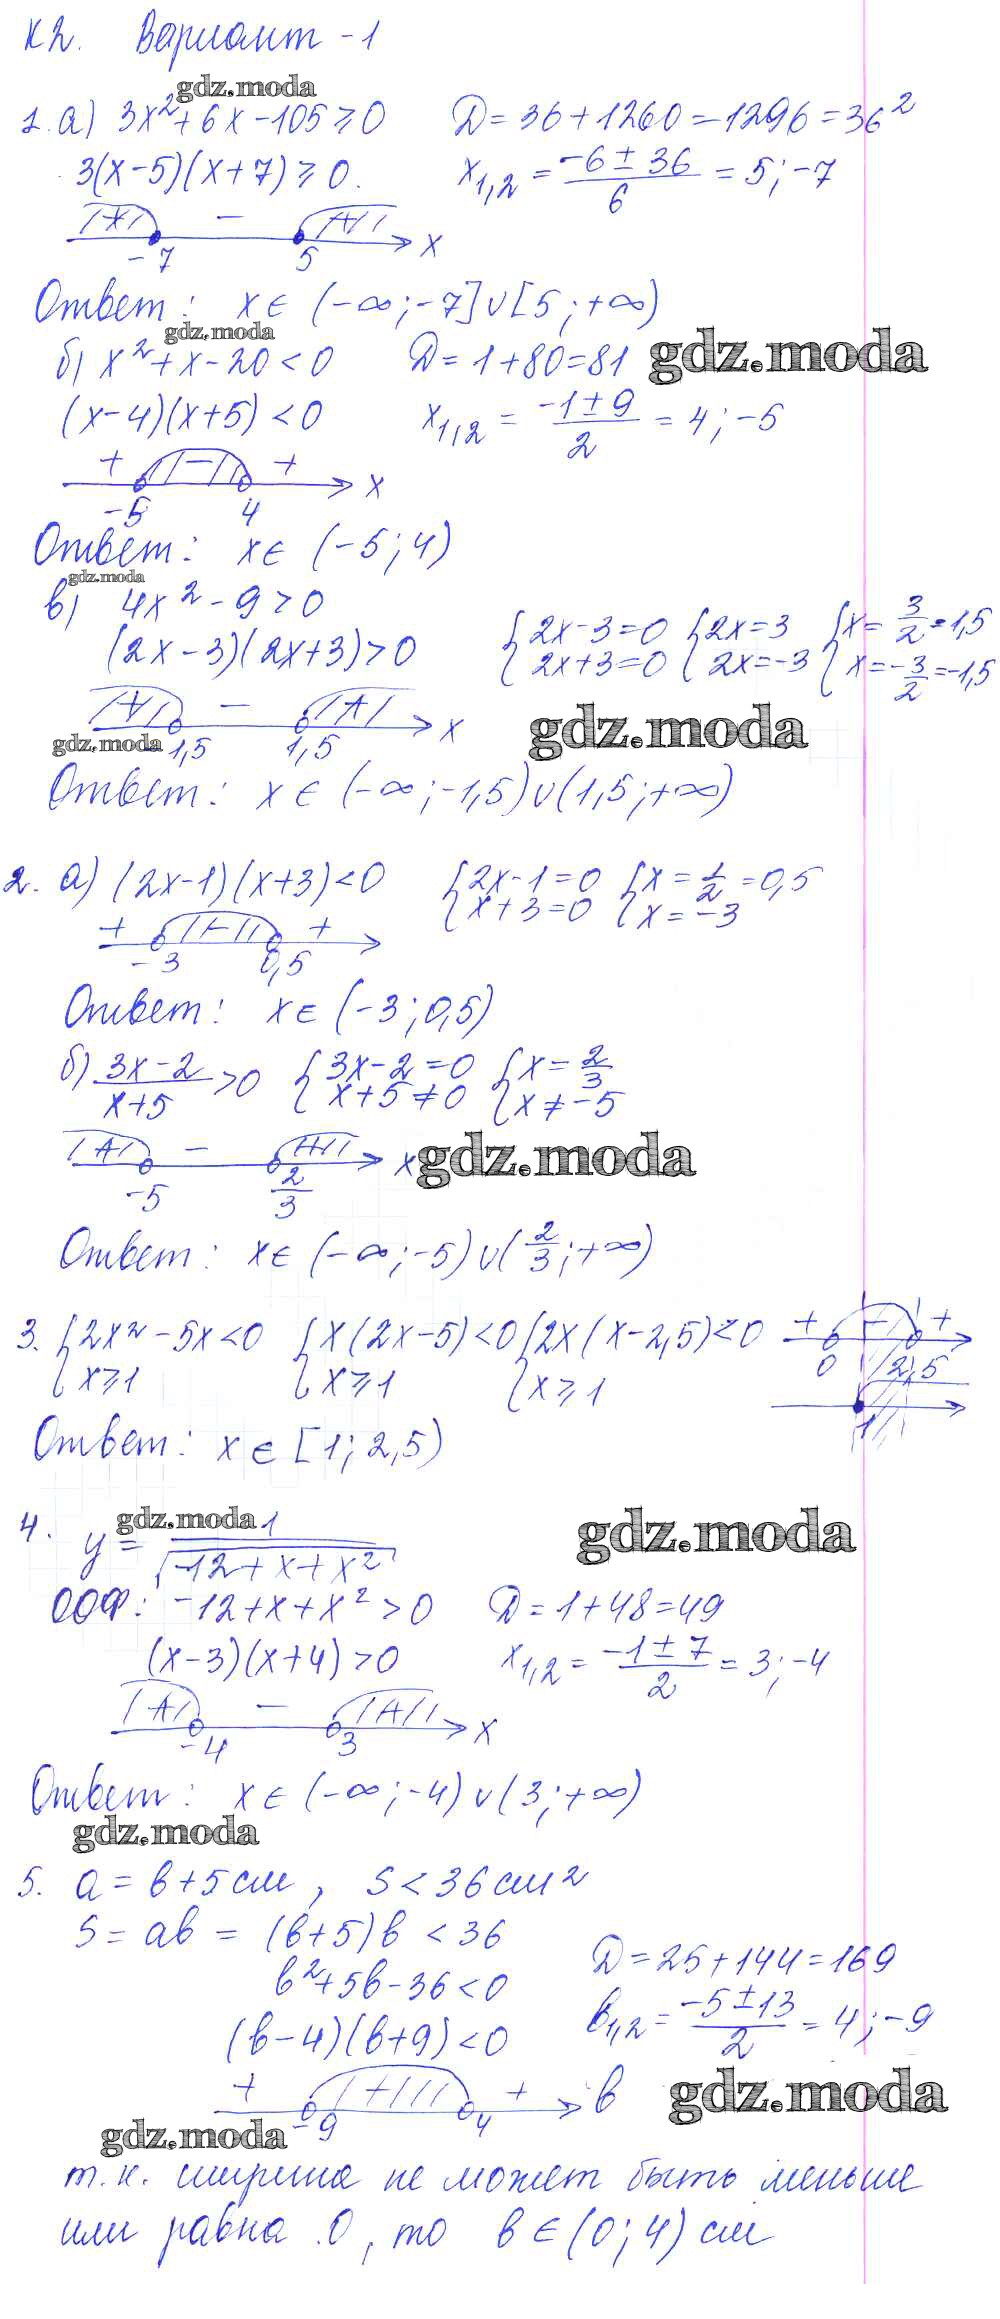 К2. Вариант - 1
gdz.moda
1. а) 3x² + 6x - 105 ⩾ 0 D = 36 + 1260 = 1296 = 36²
3(x - 5)(x + 7) ⩾ 0. x₁,₂ = (-6 ± 36)/6 = 5; -7
+ - +
-7 5 x
Ответ: x ∈ (-∞; -7] ∪ [5; +∞)
gdz.moda
б) x² + x - 20 < 0 D = 1 + 80 = 81 gdz.moda
(x - 4)(x + 5) < 0 x₁,₂ = (-1 ± 9)/2 = 4; -5
+ - +
-5 4 x
Ответ: x ∈ (-5; 4)
gdz.moda
в) 4x² - 9 > 0
(2x - 3)(2x + 3) > 0 {2x - 3 = 0 {2x = 3 {x = 3/2 = 1,5
{2x + 3 = 0 {2x = -3 {x = -3/2 = -1,5
+ - +
gdz.moda 1,5 1,5 x gdz.moda
Ответ: x ∈ (-∞; -1,5) ∪ (1,5; +∞)
2. а) (2x - 1)(x + 3) < 0 {2x - 1 = 0 {x = 1/2 = 0,5
{x + 3 = 0 {x = -3
+ - +
-3 0,5
Ответ: x ∈ (-3; 0,5)
б) (3x - 2)/(x + 5) > 0 {3x - 2 = 0 {x = 2/3
{x + 5 ≠ 0 {x ≠ -5
+ - +
-5 2/3 x gdz.moda
Ответ: x ∈ (-∞; -5) ∪ (2/3; +∞)
3. {2x² - 5x < 0 {x(2x - 5) < 0 {2x(x - 2,5) < 0 + - +
{x ⩾ 1 {x ⩾ 1 {x ⩾ 1 0 2,5
1
Ответ: x ∈ [1; 2,5)
4. y = 1/√(-12 + x + x²) gdz.moda gdz.moda
ООФ: -12 + x + x² > 0 D = 1 + 48 = 49
(x - 3)(x + 4) > 0 x₁,₂ = (-1 ± 7)/2 = 3; -4
+ - +
-4 3 x
Ответ: x ∈ (-∞; -4) ∪ (3; +∞)
gdz.moda
5. a = b + 5 см, S < 36 см²
S = ab = (b + 5)b < 36
b² + 5b - 36 < 0 D = 25 + 144 = 169
(b - 4)(b + 9) < 0 b₁,₂ = (-5 ± 13)/2 = 4; -9
+ + +
-9 4 b gdz.moda
gdz.moda
т.к. ширина не может быть меньше
или равна 0, то b ∈ (0; 4) см